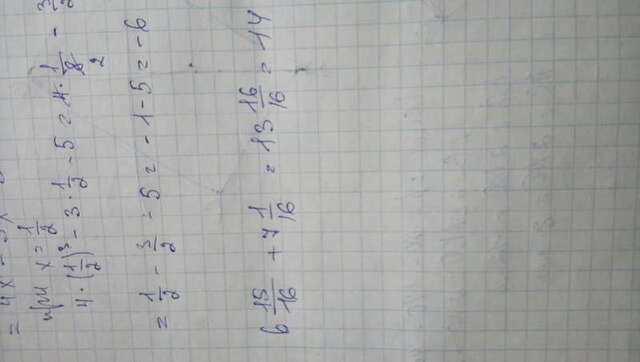 = 4x
при x = 1/2
4 · (1/2)³ - 3 · 1/2 - 5 = 4 · 1/8 2 - 3/2
= 1/2 - 3/2 - 5 = -1 - 5 = -6
6 15/16 + 7 1/16 = 13 16/16 = 14